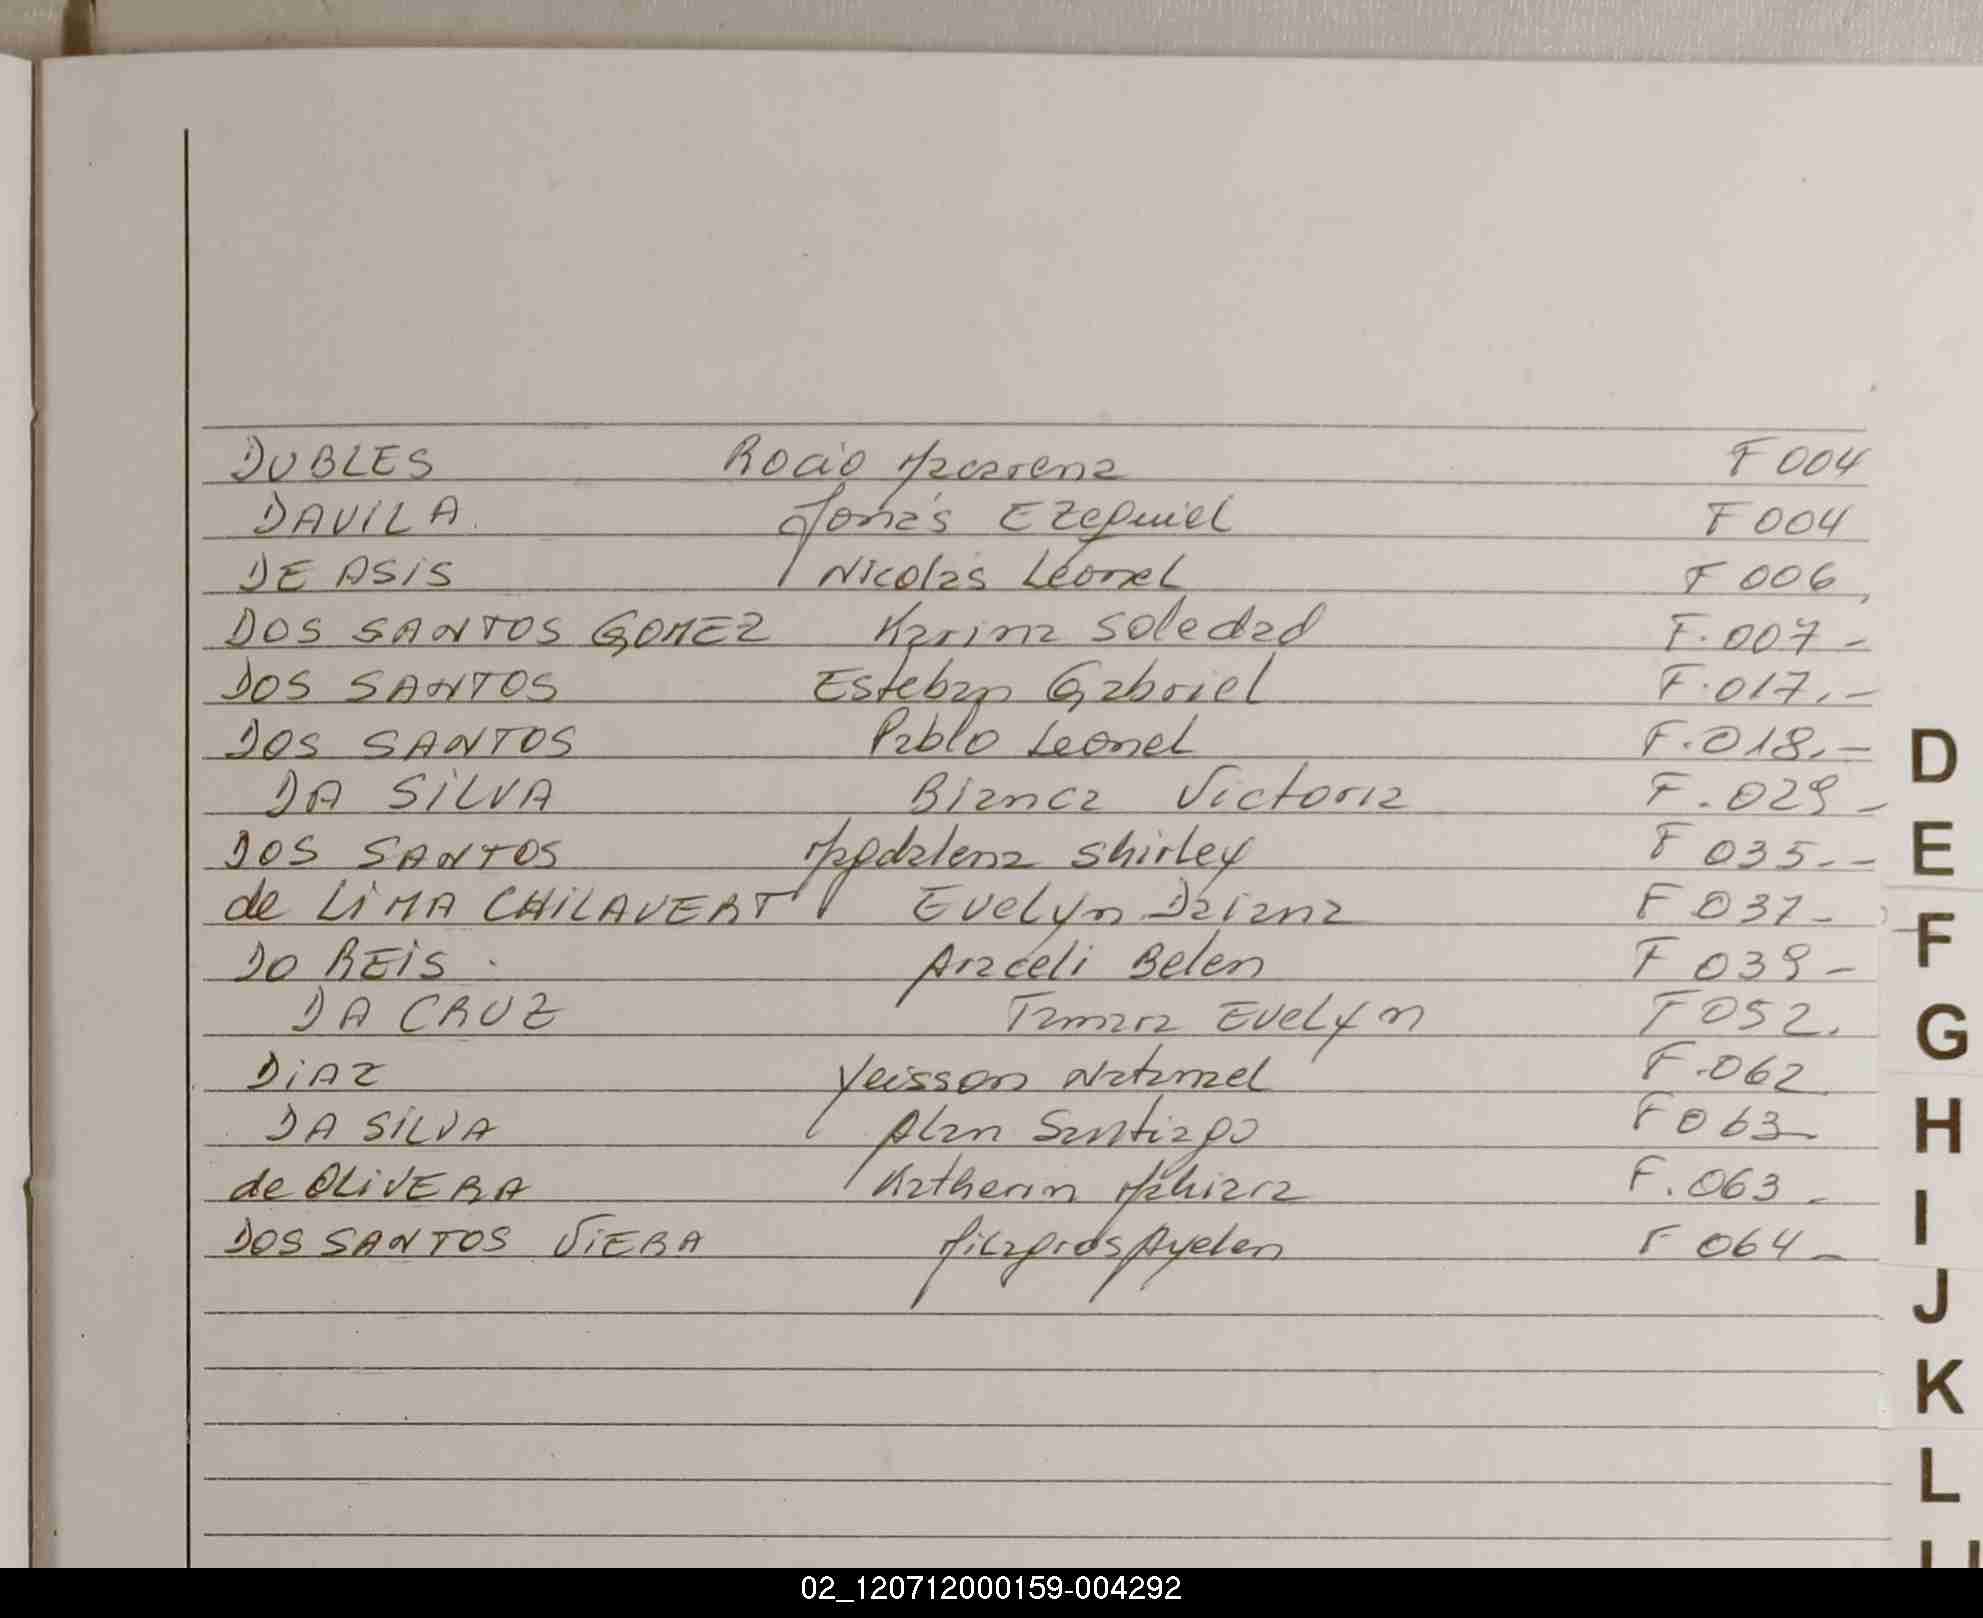 DUBLES Rocio Macarena F 004
DAVILA. Jonás Ezequiel F 004
DE ASIS Nicolas Leonel F 006,
DOS SANTOS GOMEZ Karina Soledad F. 007 -
DOS SANTOS Esteban Gabriel F. 017.-
DOS SANTOS Pablo Leonel F. 018.-
DA SILVA Bianca Victoria F. 029 -
DOS SANTOS Magdalena Shirley F 035.-
de LIMA CHILAVERT Evelyn Daiana F 037-
DO REIS. Araceli Belen F 039 -
DA CRUZ Tamara Evelyn F 052.
DIAZ Yeisson Natanael F.062
DA SILVA Alan Santiago F 063-
de OLIVERA Katherin Mahiara F. 063 -
DOS SANTOS VIERA Milagros Ayelen F 064 -
D
E
F
G
H
I
J
K
L
02_120712000159-004292